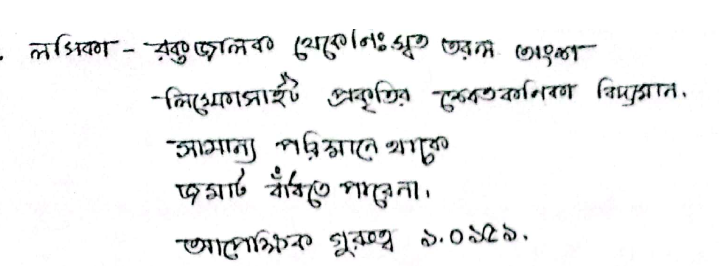 . লসিকা - রক্তজালক থেকে নিঃসৃত তরল অংশ
- লিম্ফোসাইট প্রকৃতির শ্বেতকনিকা বিদ্যমান.
সামান্য পরিমানে থাকে
জমাট বাঁধতে পারেনা.
আপেক্ষিক গুরুত্ব ১.০১৫১.